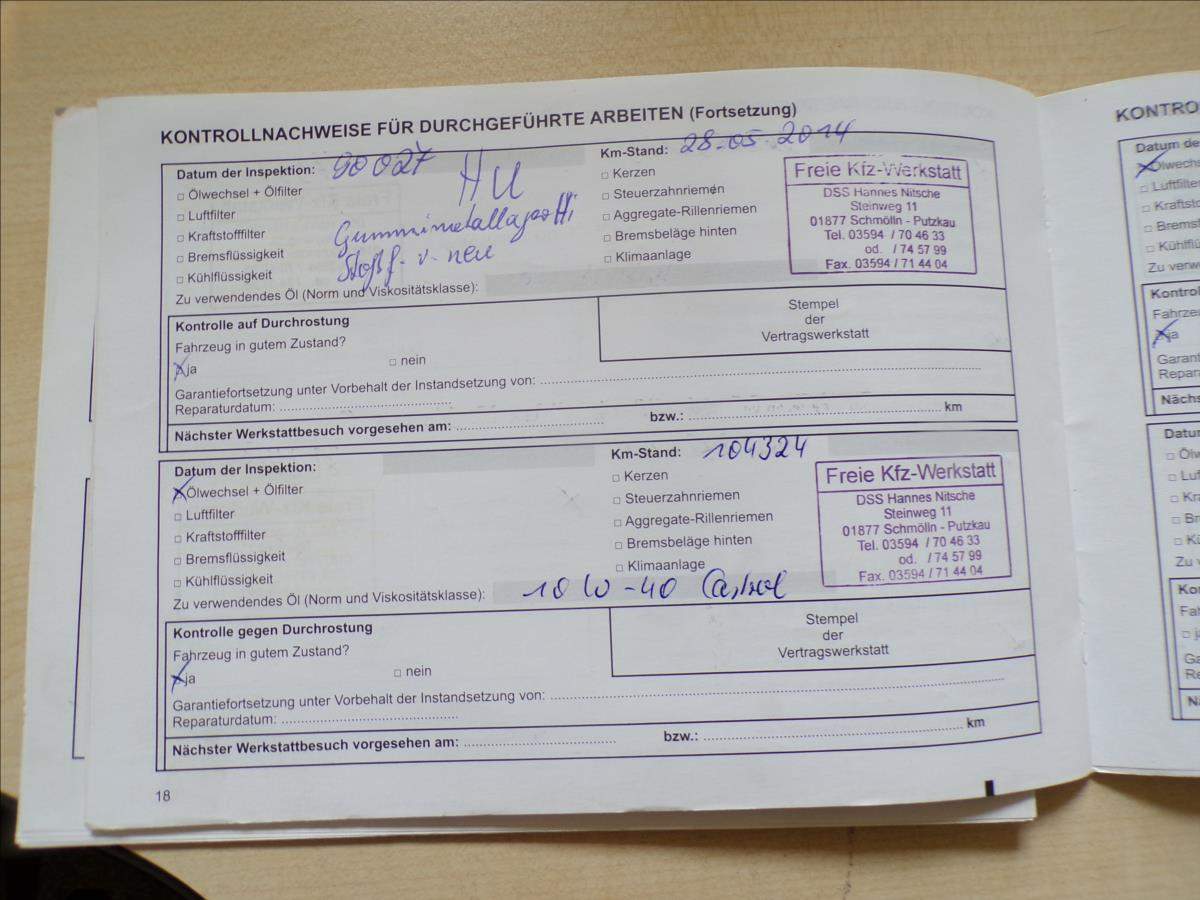 KONTROLLNACHWEISE FÜR DURCHGEFÜHRTE ARBEITEN (Fortsetzung)
Datum der Inspektion: 90027 HU
Km-Stand: 28.05.2014
□ Ölwechsel + Ölfilter
□ Luftfilter
□ Kraftstofffilter
□ Bremsflüssigkeit
□ Kühlflüssigkeit
Gummimetallager
Stoßf. v. neu
□ Kerzen
□ Steuerzahnriemen
□ Aggregate-Rillenriemen
□ Bremsbeläge hinten
□ Klimaanlage
Freie Kfz-Werkstatt
DSS Hannes Nitsche
Steinweg 11
01877 Schmölln - Putzkau
Tel. 03594 / 70 46 33
od. / 74 57 99
Fax. 03594 / 71 44 04
Zu verwendendes Öl (Norm und Viskositätsklasse):
Kontrolle auf Durchrostung
Fahrzeug in gutem Zustand?
☒ ja □ nein
Stempel
der
Vertragswerkstatt
Garantiefortsetzung unter Vorbehalt der Instandsetzung von:
Reparaturdatum:
Nächster Werkstattbesuch vorgesehen am: bzw.: km
Datum der Inspektion:
Km-Stand: 104324
☒ Ölwechsel + Ölfilter
□ Luftfilter
□ Kraftstofffilter
□ Bremsflüssigkeit
□ Kühlflüssigkeit
□ Kerzen
□ Steuerzahnriemen
□ Aggregate-Rillenriemen
□ Bremsbeläge hinten
□ Klimaanlage
Freie Kfz-Werkstatt
DSS Hannes Nitsche
Steinweg 11
01877 Schmölln - Putzkau
Tel. 03594 / 70 46 33
od. / 74 57 99
Fax. 03594 / 71 44 04
Zu verwendendes Öl (Norm und Viskositätsklasse): 10 W-40 Castrol
Kontrolle gegen Durchrostung
Fahrzeug in gutem Zustand?
☒ ja □ nein
Stempel
der
Vertragswerkstatt
Garantiefortsetzung unter Vorbehalt der Instandsetzung von:
Reparaturdatum:
Nächster Werkstattbesuch vorgesehen am: bzw.: km
18